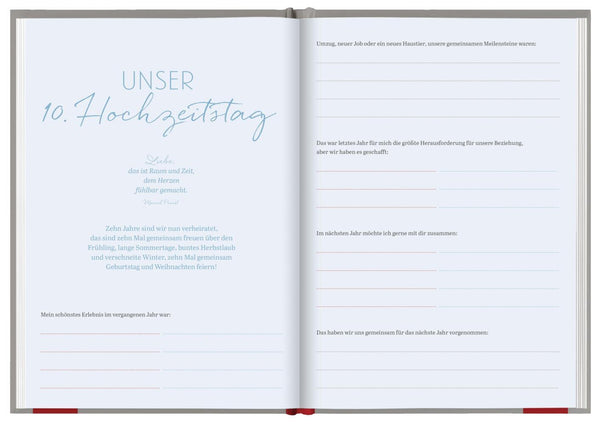 UNSER
10. Hochzeitstag
Liebe,
das ist Raum und Zeit,
dem Herzen
fühlbar gemacht.
Marcel Proust
Zehn Jahre sind wir nun verheiratet,
das sind zehn Mal gemeinsam freuen über den
Frühling, lange Sommertage, buntes Herbstlaub
und verschneite Winter, zehn Mal gemeinsam
Geburtstag und Weihnachten feiern!
Mein schönstes Erlebnis im vergangenen Jahr war:
Umzug, neuer Job oder ein neues Haustier, unsere gemeinsamen Meilensteine waren:
Das war letztes Jahr für mich die größte Herausforderung für unsere Beziehung,
aber wir haben es geschafft:
Im nächsten Jahr möchte ich gerne mit dir zusammen:
Das haben wir uns gemeinsam für das nächste Jahr vorgenommen: